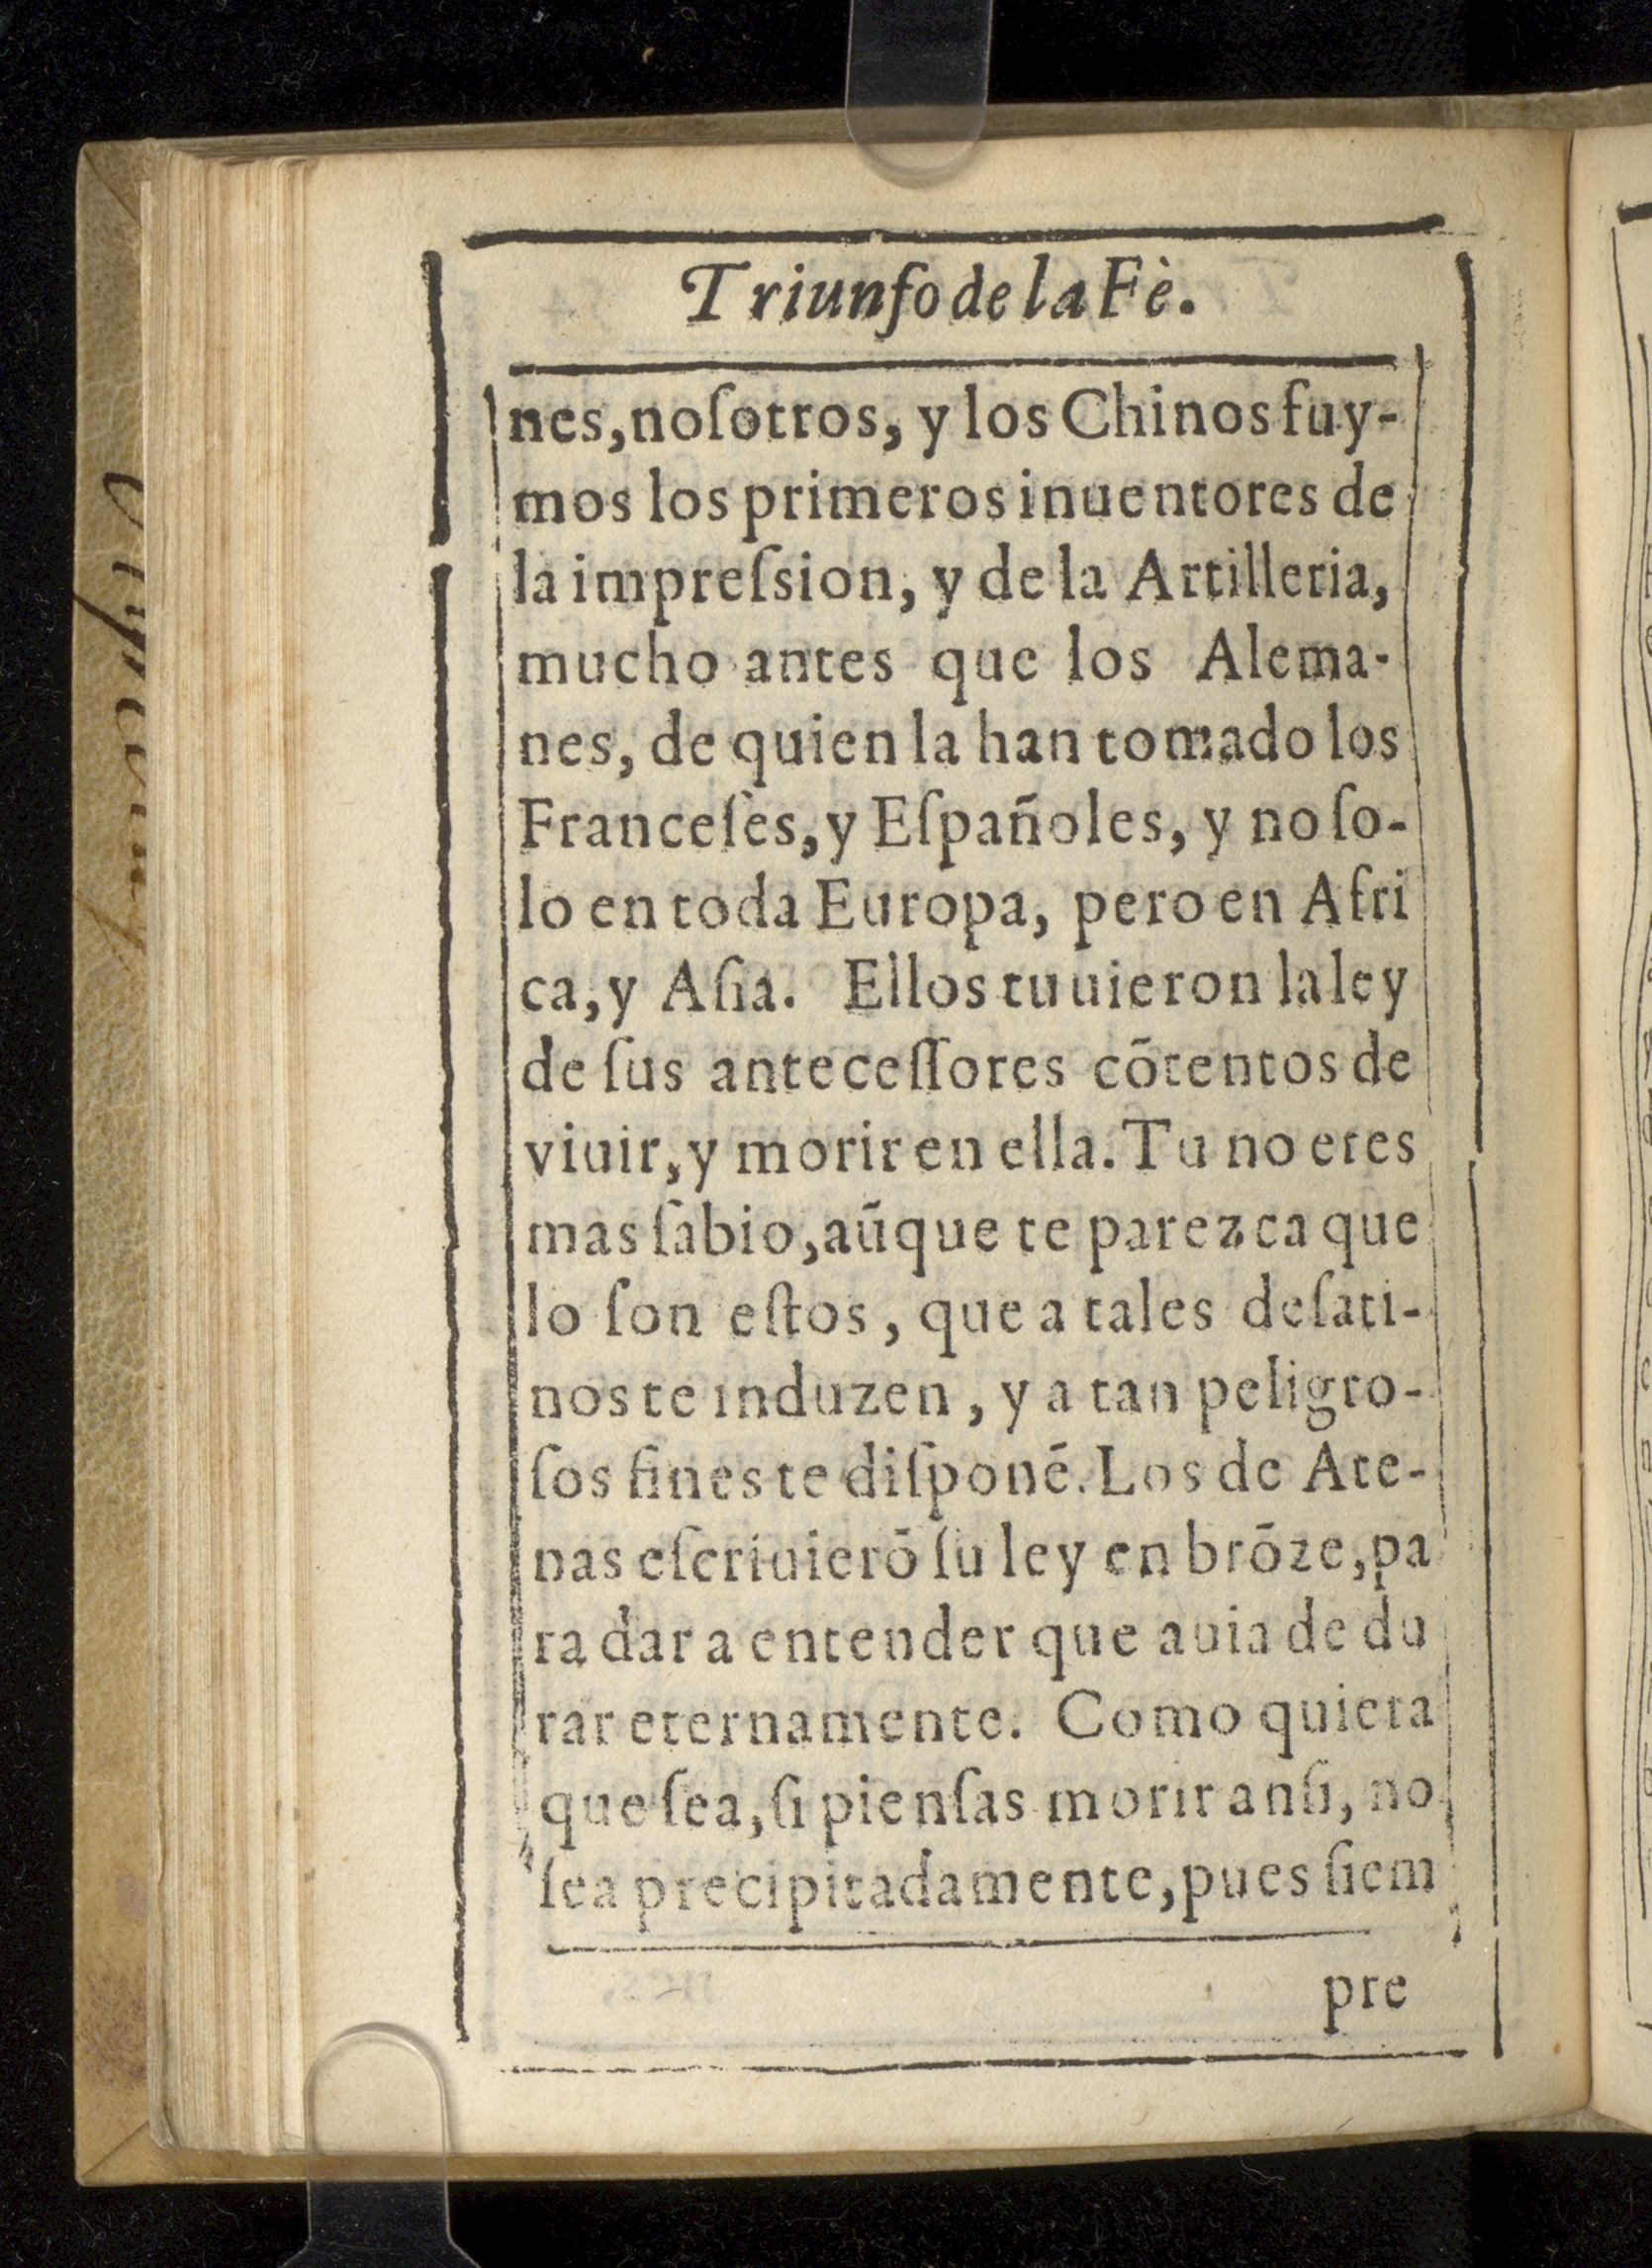 Triunfo de la Fè.
nes, noſotros, y los Chinos fuy-
mos los primeros inuentores de
la impreſsion, y de la Artilleria,
mucho antes que los Alema-
nes, de quien la han tomado los
Franceſes, y Eſpañoles, y no ſo-
lo en toda Europa, pero en Afri
ca, y Aſia. Ellos tuuieron la ley
de ſus anteceſſores cõtentos de
viuir, y morir en ella. Tu no eres
mas ſabio, aũque te parezca que
lo ſon eſtos, que a tales deſati-
nos te induzen, y a tan peligro-
ſos fines te diſponẽ. Los de Ate-
nas eſcriuierõ ſu ley en brõze, pa
ra dar a entender que auia de du
rar eternamente. Como quiera
que ſea, ſi pienſas morir anſi, no
ſea precipitadamente, pues ſiem
pre